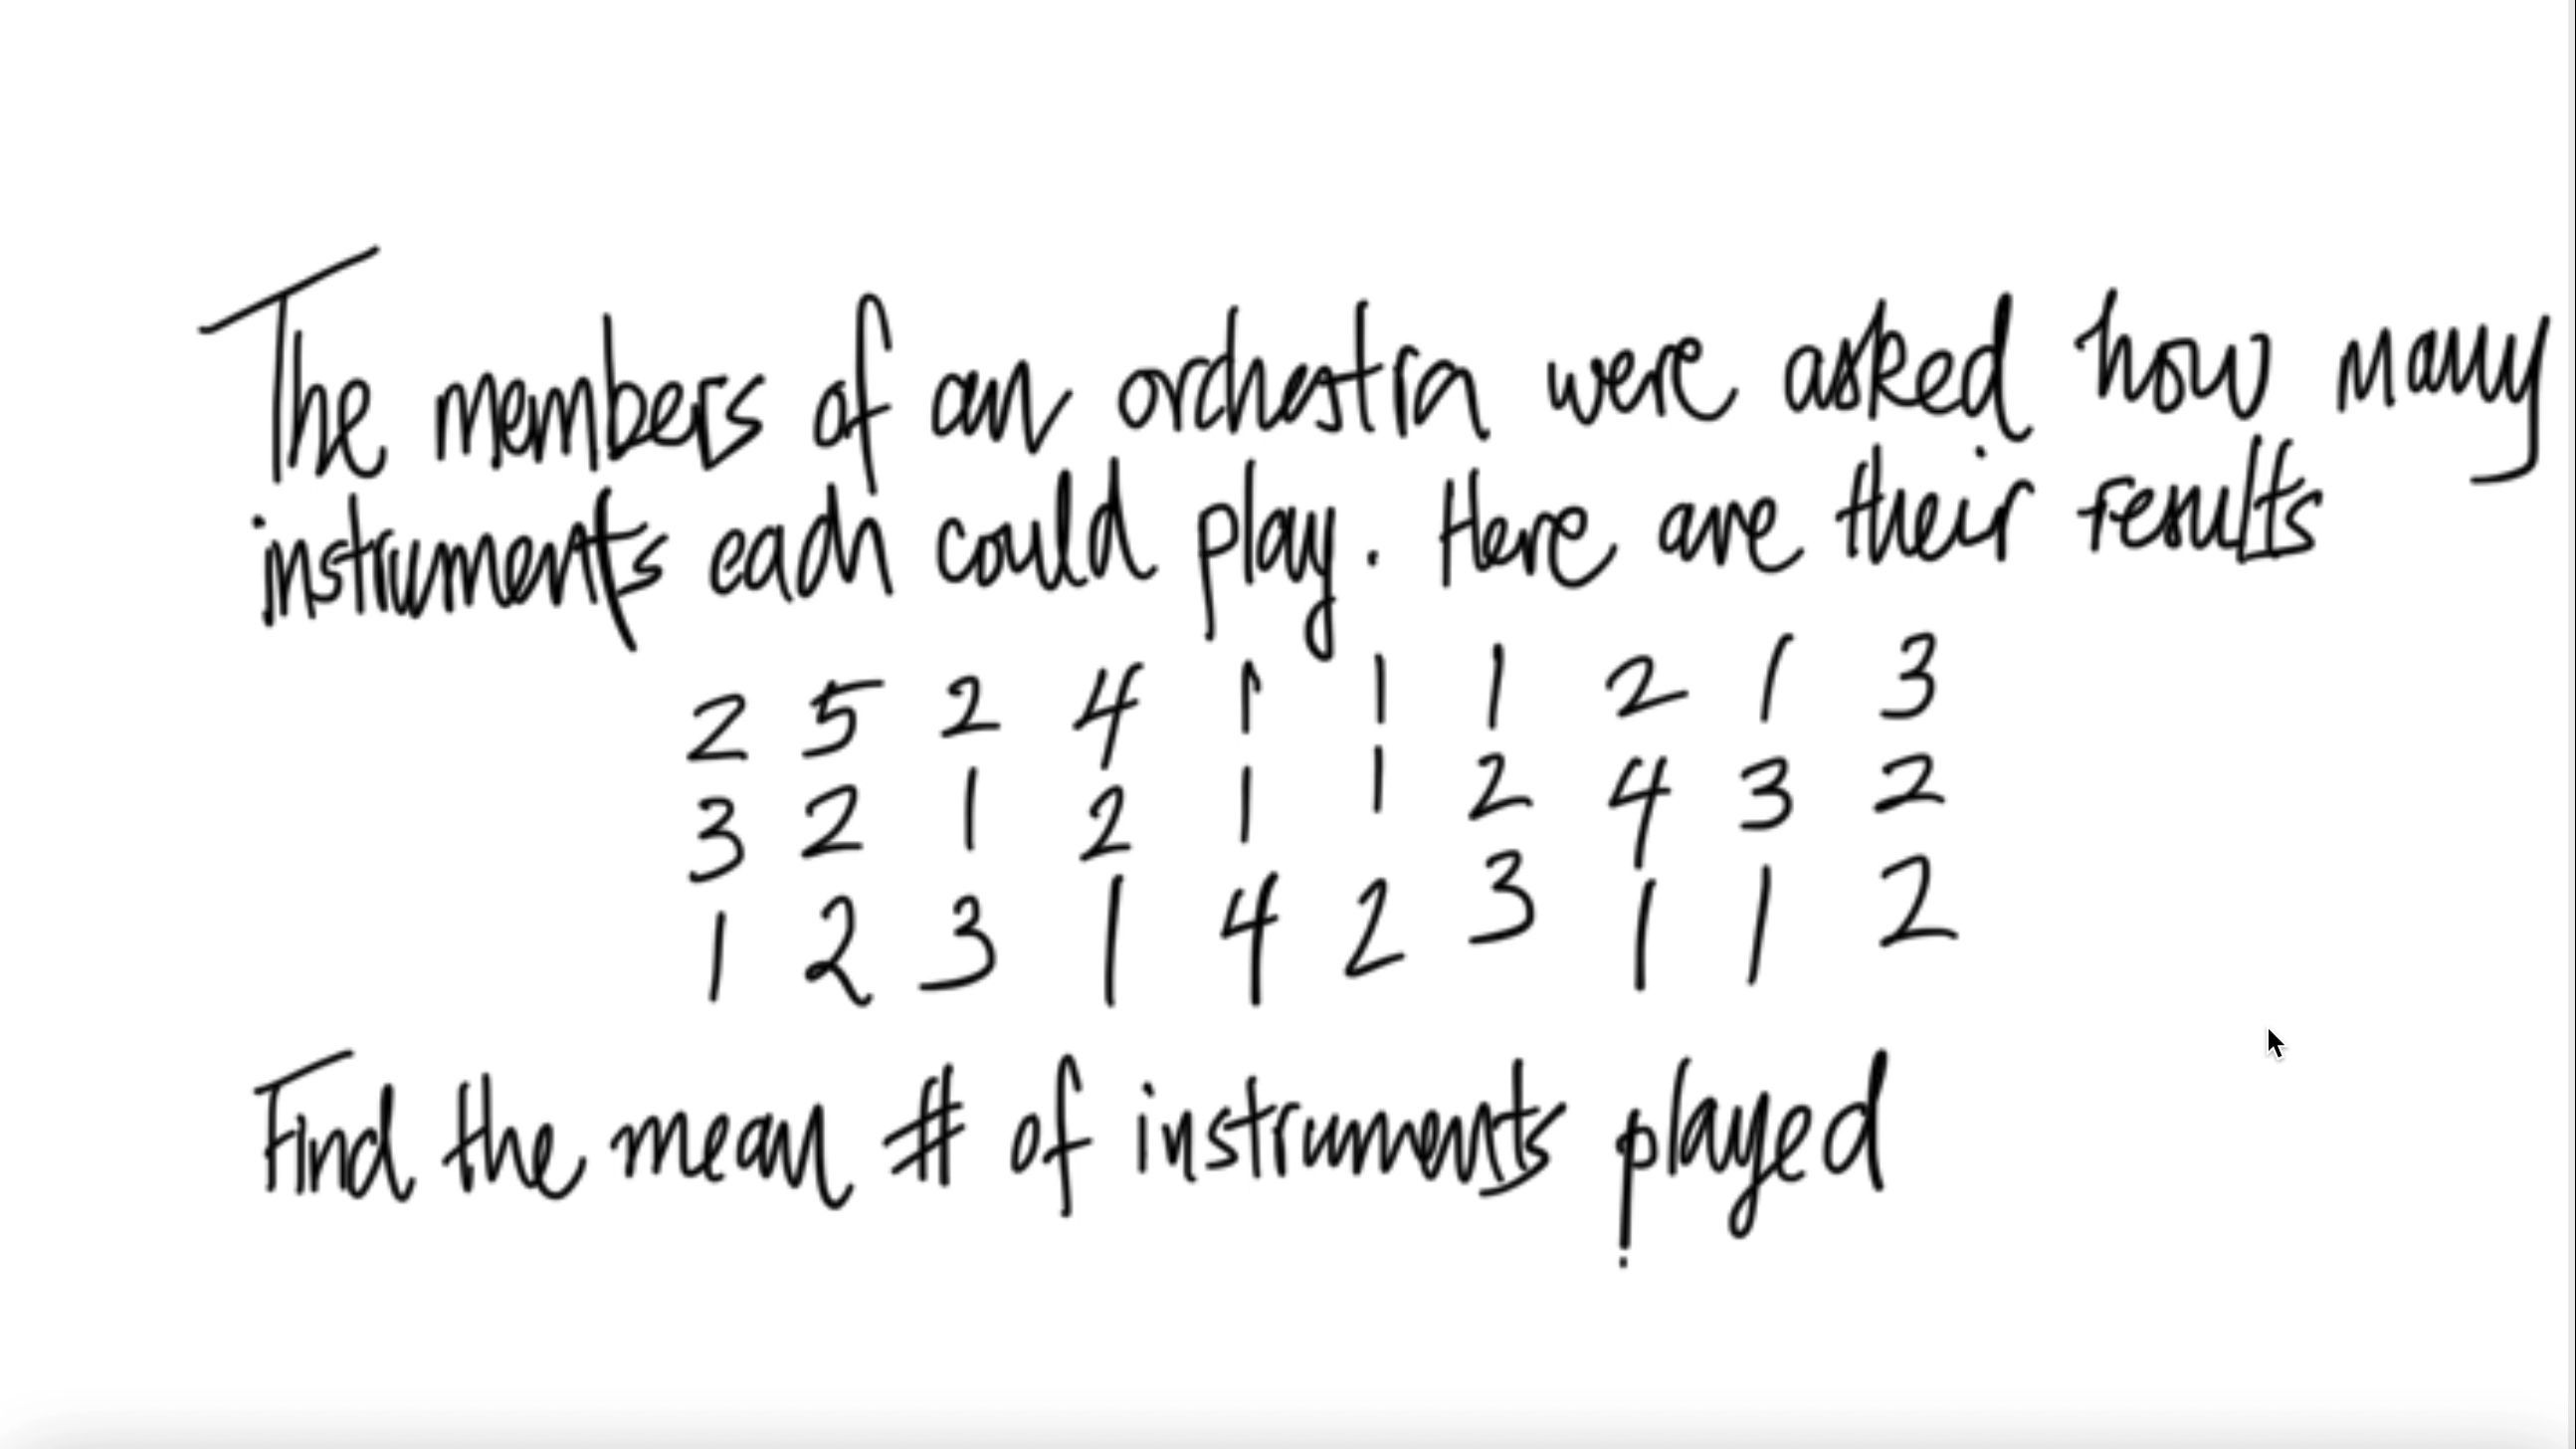 The members of an orchestra were asked how many
instruments each could play. Here are their results
2 5 2 4 1 1 1 2 1 3
3 2 1 2 1 1 2 4 3 2
1 2 3 1 4 2 3 1 1 2
Find the mean # of instruments played